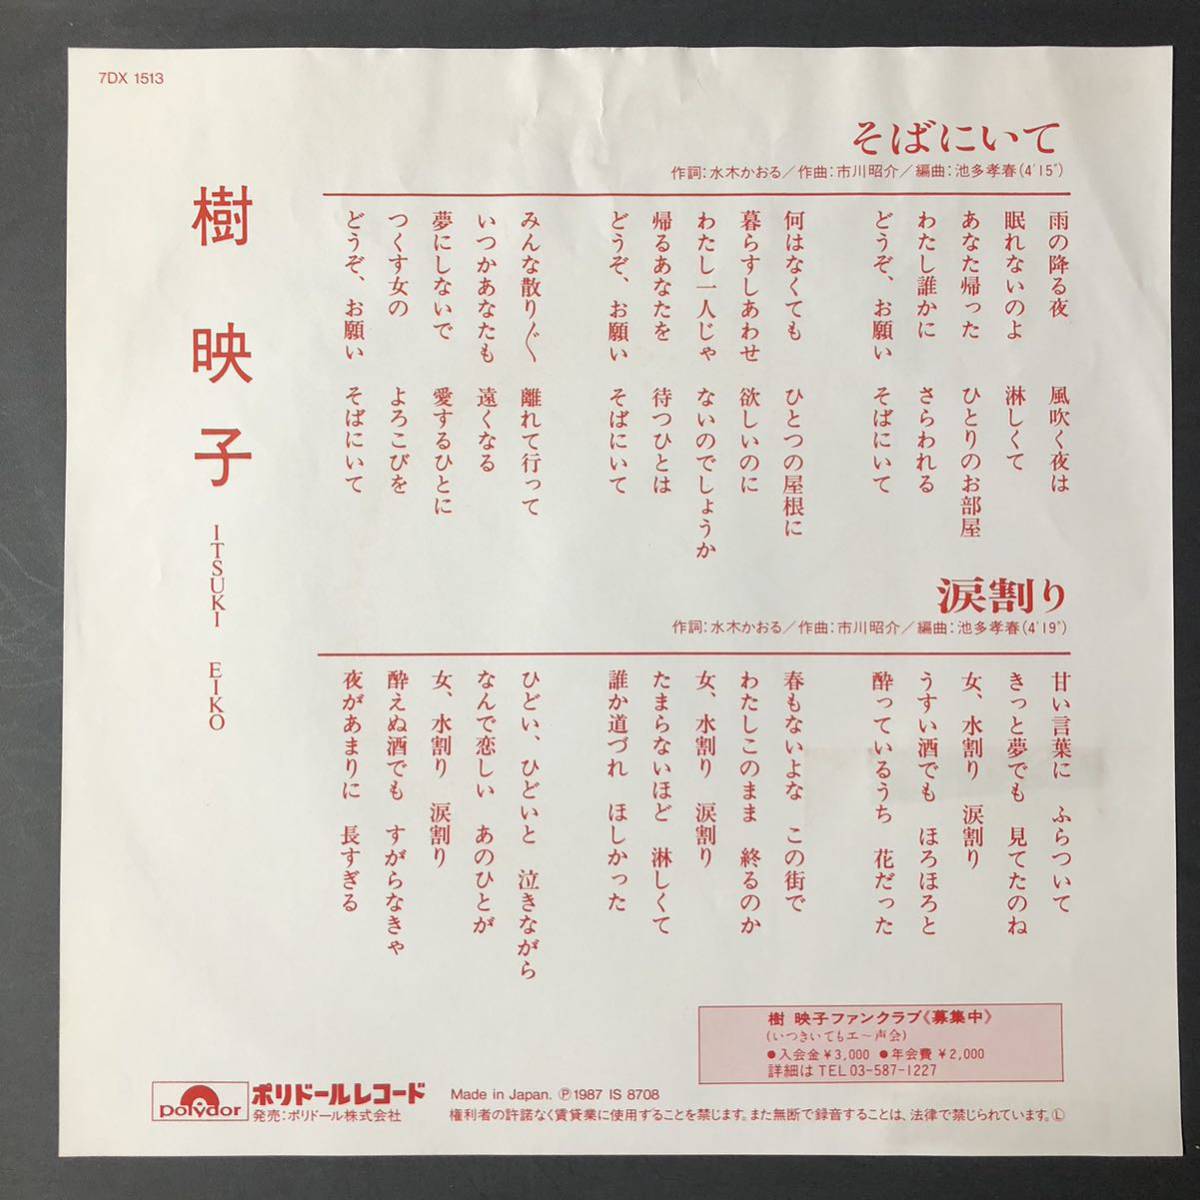 7DX 1513
樹 映子
ITSUKI EIKO
そばにいて
作詞：水木かおる／作曲：市川昭介／編曲：池多孝春(4'15")
雨の降る夜　風吹く夜は
眠れないのよ　淋しくて
あなた帰った　ひとりのお部屋
わたし誰かに　さらわれる
どうぞ、お願い　そばにいて
何はなくても　ひとつの屋根に
暮らすしあわせ　欲しいのに
わたし一人じゃ　ないのでしょうか
帰るあなたを　待つひとは
どうぞ、お願い　そばにいて
みんな散り〴〵　離れて行って
いつかあなたも　遠くなる
夢にしないで　愛するひとに
つくす女の　よろこびを
どうぞ、お願い　そばにいて
涙割り
作詞：水木かおる／作曲：市川昭介／編曲：池多孝春(4'19")
甘い言葉に　ふらついて
きっと夢でも　見てたのね
女、水割り　涙割り
うすい酒でも　ほろほろと
酔っているうち　花だった
春もないよな　この街で
わたしこのまま　終るのか
女、水割り　涙割り
たまらないほど　淋しくて
誰か道づれ　ほしかった
ひどい、ひどいと　泣きながら
なんで恋しい　あのひとが
女、水割り　涙割り
酔えぬ酒でも　すがらなきゃ
夜があまりに　長すぎる
樹 映子ファンクラブ《募集中》
(いつきいてもエ〜声会)
●入会金￥3,000 ●年会費￥2,000
詳細はTEL03-587-1227
polydor
ポリドールレコード
発売：ポリドール株式会社
Made in Japan. Ⓟ1987 IS 8708
権利者の許諾なく賃貸業に使用することを禁じます。また無断で録音することは、法律で禁じられています。Ⓛ